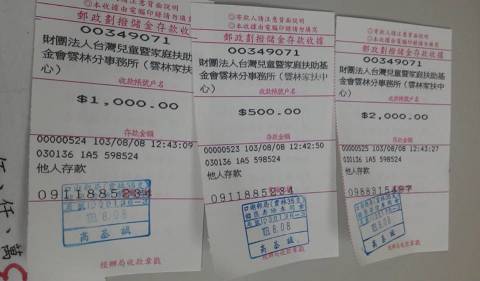 ◎寄款人請注意背面說明
◎本收據由電腦印錄請勿填寫
郵政劃撥儲金存款收據
00349071
財團法人台灣兒童暨家庭扶助基
金會雲林分事務所（雲林家扶中
心）
收款帳號戶名
$1,000.00
存款金額
00000524 103/08/08 12:43:09
030136 1A5 598524
他人存款
0911885234
103.8.08
經辦局收款章戳
◎寄款人請注意背面說明
◎本收據由電腦印錄請勿填寫
郵政劃撥儲金存款收據
00349071
財團法人台灣兒童暨家庭扶助基
金會雲林分事務所（雲林家扶中
心）
收款帳號戶名
$500.00
存款金額
00000523 103/08/08 12:42:50
030136 1A5 598524
他人存款
0911885234
經辦局收款章戳
◎寄款人請注意背面說明
◎本收據由電腦印錄請勿填寫
郵政劃撥儲金存款收據
00349071
財團法人台灣兒童暨家庭扶助基
金會雲林分事務所（雲林家扶中
心）
收款帳號戶名
$2,000.00
存款金額
00000525 103/08/08 12:43:27
030136 1A5 598524
他人存款
經辦局收款章戳
仟、萬